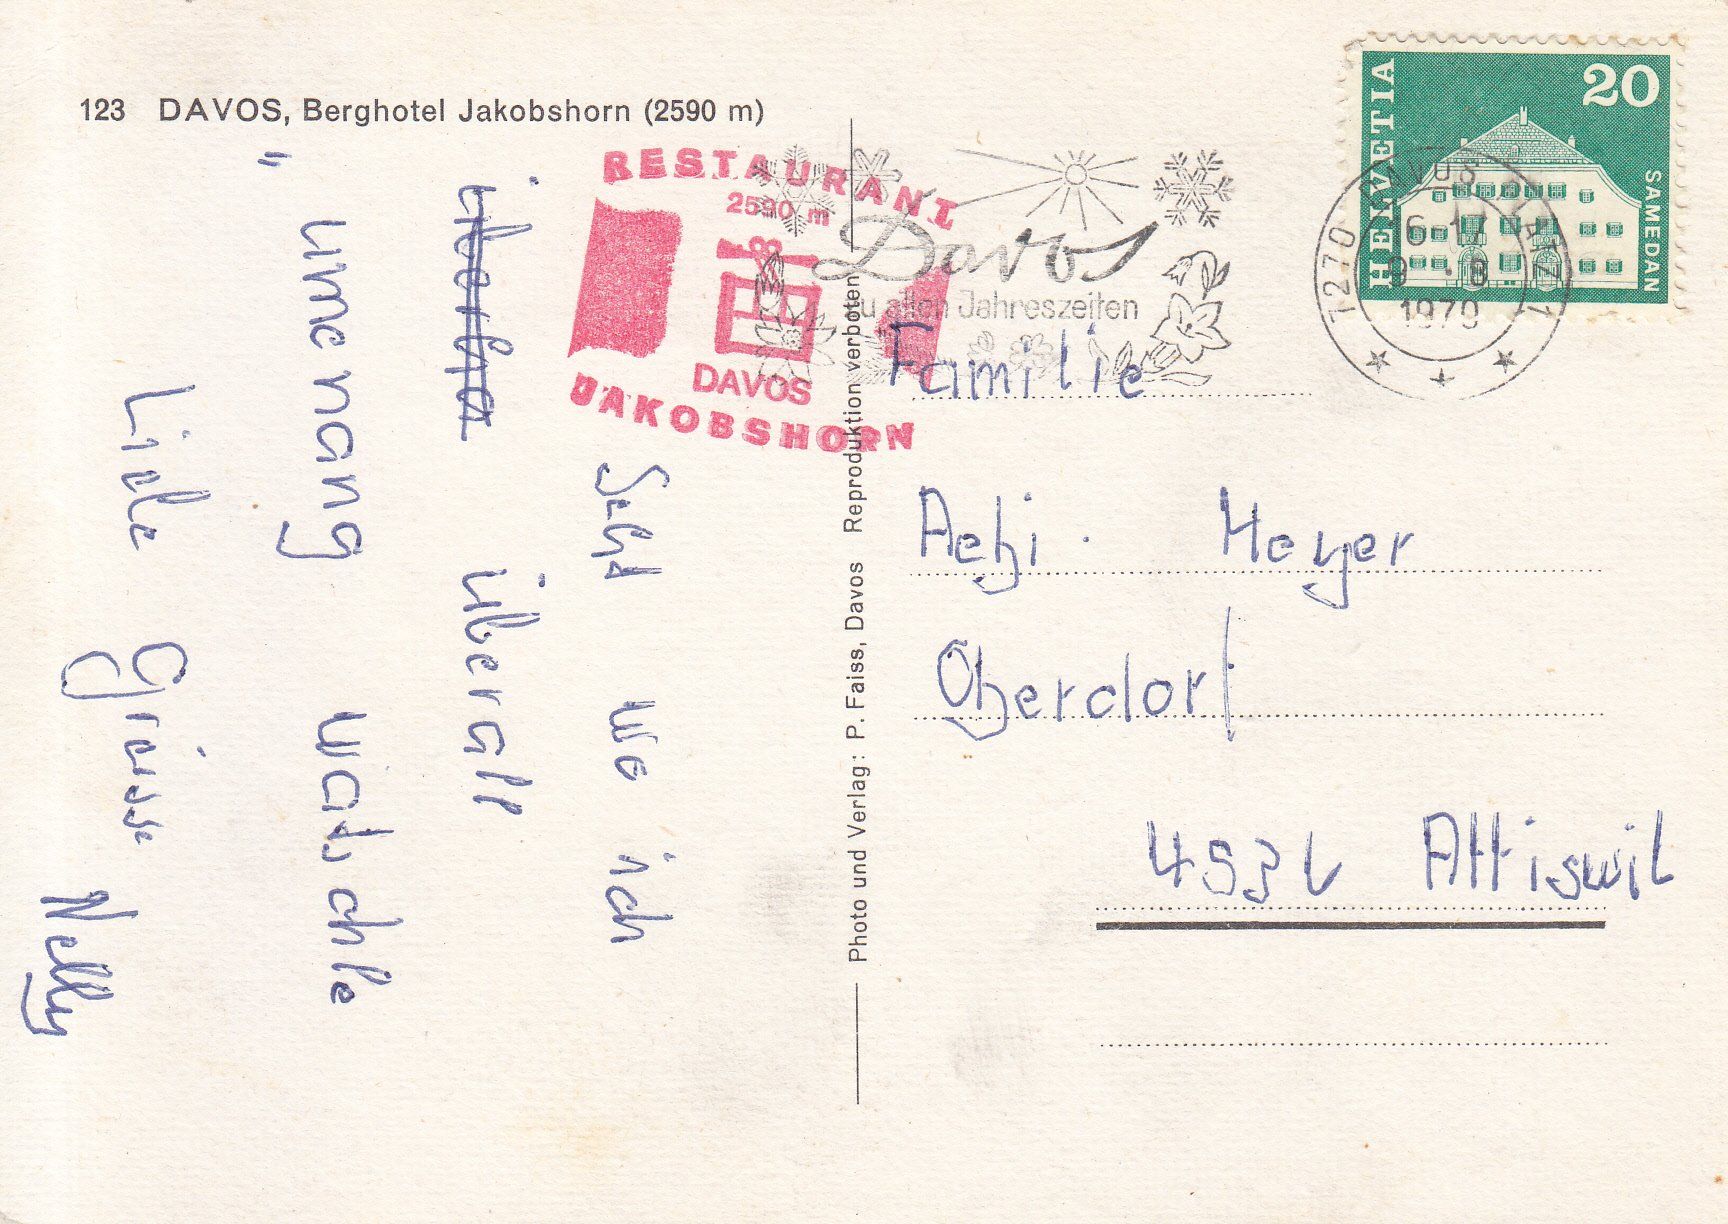 123 DAVOS, Berghotel Jakobshorn (2590 m)
RESTAURANT
2590 m
DAVOS
JAKOBSHORN
Davos
zu allen Jahreszeiten
HELVETIA
20
SAMEDAN
7270 DAVOS PLATZ 1
1979
Seht wo ich
überall
" umenang watschle
Liebe Grüsse
Nelly
Photo und Verlag: P. Faiss, Davos Reproduktion verboten
Familie
Aebi. Meyer
Oberdorf
Attiswil